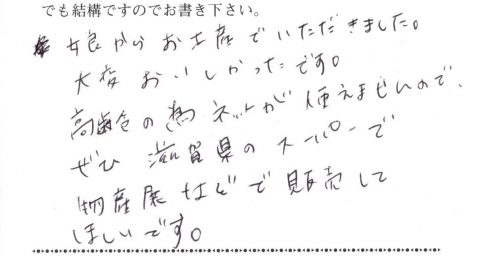 でも結構ですのでお書き下さい。
娘からお土産でいただきました。
大変おいしかったです。
高齢の為ネットが使えませんので、
ぜひ滋賀県のスーパーで
物産展などで販売して
ほしいです。